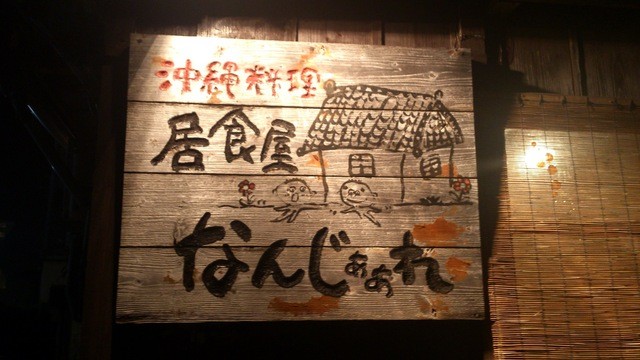 沖縄料理
居食屋
なんじぁぁれ